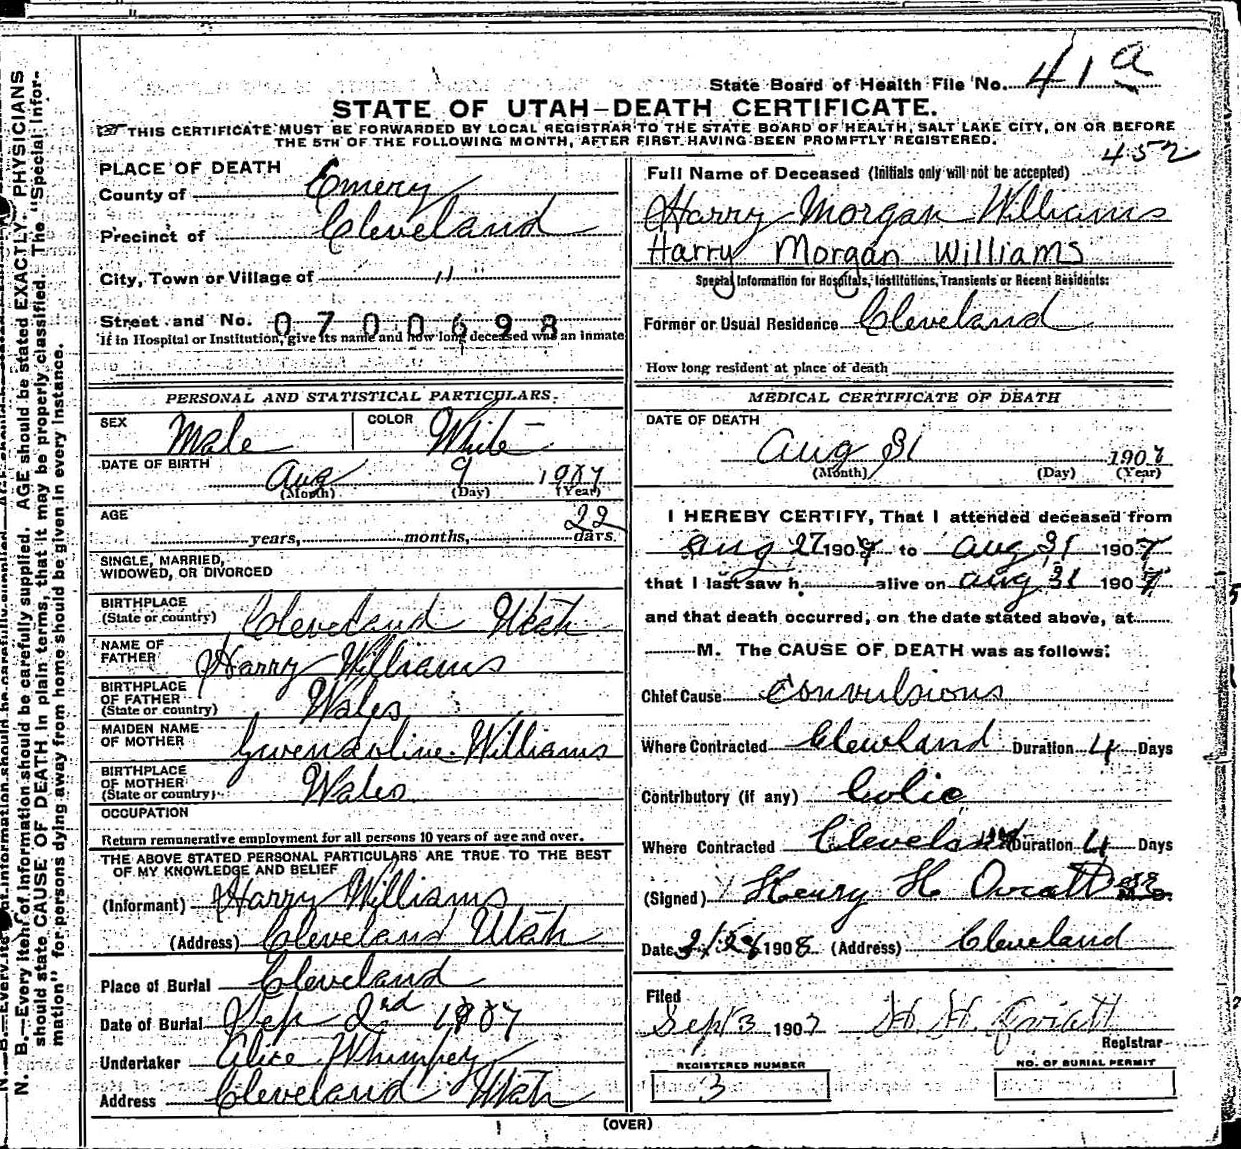 State Board of Health File No. 41 a
STATE OF UTAH—DEATH CERTIFICATE.
THIS CERTIFICATE MUST BE FORWARDED BY LOCAL REGISTRAR TO THE STATE BOARD OF HEALTH, SALT LAKE CITY, ON OR BEFORE
THE 5TH OF THE FOLLOWING MONTH, AFTER FIRST HAVING BEEN PROMPTLY REGISTERED.
452
PLACE OF DEATH
County of Emery
Precinct of Cleveland
City, Town or Village of "
Street and No. 0700698
If in Hospital or Institution, give its name and how long deceased was an inmate
PERSONAL AND STATISTICAL PARTICULARS.
SEX Male COLOR White
DATE OF BIRTH Aug 9 1907
(Month) (Day) (Year)
AGE years, months, 22 days.
SINGLE, MARRIED,
WIDOWED, OR DIVORCED
BIRTHPLACE
(State or country) Cleveland Utah
NAME OF
FATHER Harry Williams
BIRTHPLACE
OF FATHER
(State or country) Wales
MAIDEN NAME
OF MOTHER Gwendoline Williams
BIRTHPLACE
OF MOTHER
(State or country) Wales
OCCUPATION
Return remunerative employment for all persons 10 years of age and over.
THE ABOVE STATED PERSONAL PARTICULARS ARE TRUE TO THE BEST
OF MY KNOWLEDGE AND BELIEF
(Informant) Harry Williams
(Address) Cleveland Utah
Place of Burial Cleveland
Date of Burial Sep 2nd 1907
Undertaker Alice
Address Cleveland Utah
Full Name of Deceased (Initials only will not be accepted)
Harry Morgan Williams
Harry Morgan Williams
Special Information for Hospitals, Institutions, Transients or Recent Residents:
Former or Usual Residence Cleveland
How long resident at place of death
MEDICAL CERTIFICATE OF DEATH
DATE OF DEATH
Aug 31 1907
(Month) (Day) (Year)
I HEREBY CERTIFY, That I attended deceased from
Aug 27 1907 to Aug 31 1907
that I last saw h alive on Aug 31 1907
and that death occurred, on the date stated above, at
M. The CAUSE OF DEATH was as follows:
Chief Cause Convulsions
Where Contracted Cleveland Duration 4 Days
Contributory (if any) Colic
Where Contracted Cleveland Duration 4 Days
(Signed) Henry H Oviatt
Date 1908 (Address) Cleveland
Filed
Sept 3 1907 H. H. Oviatt
Registrar
REGISTERED NUMBER
3
NO. OF BURIAL PERMIT
(OVER)
N. B.—Every item of information should be carefully supplied. AGE should be stated EXACTLY. PHYSICIANS
should state CAUSE OF DEATH in plain terms, that it may be properly classified. The "Special Infor-
mation" for persons dying away from home should be given in every instance.